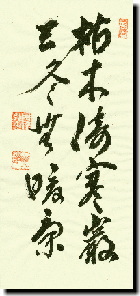 枯木倚寒巖
三冬無暖氣